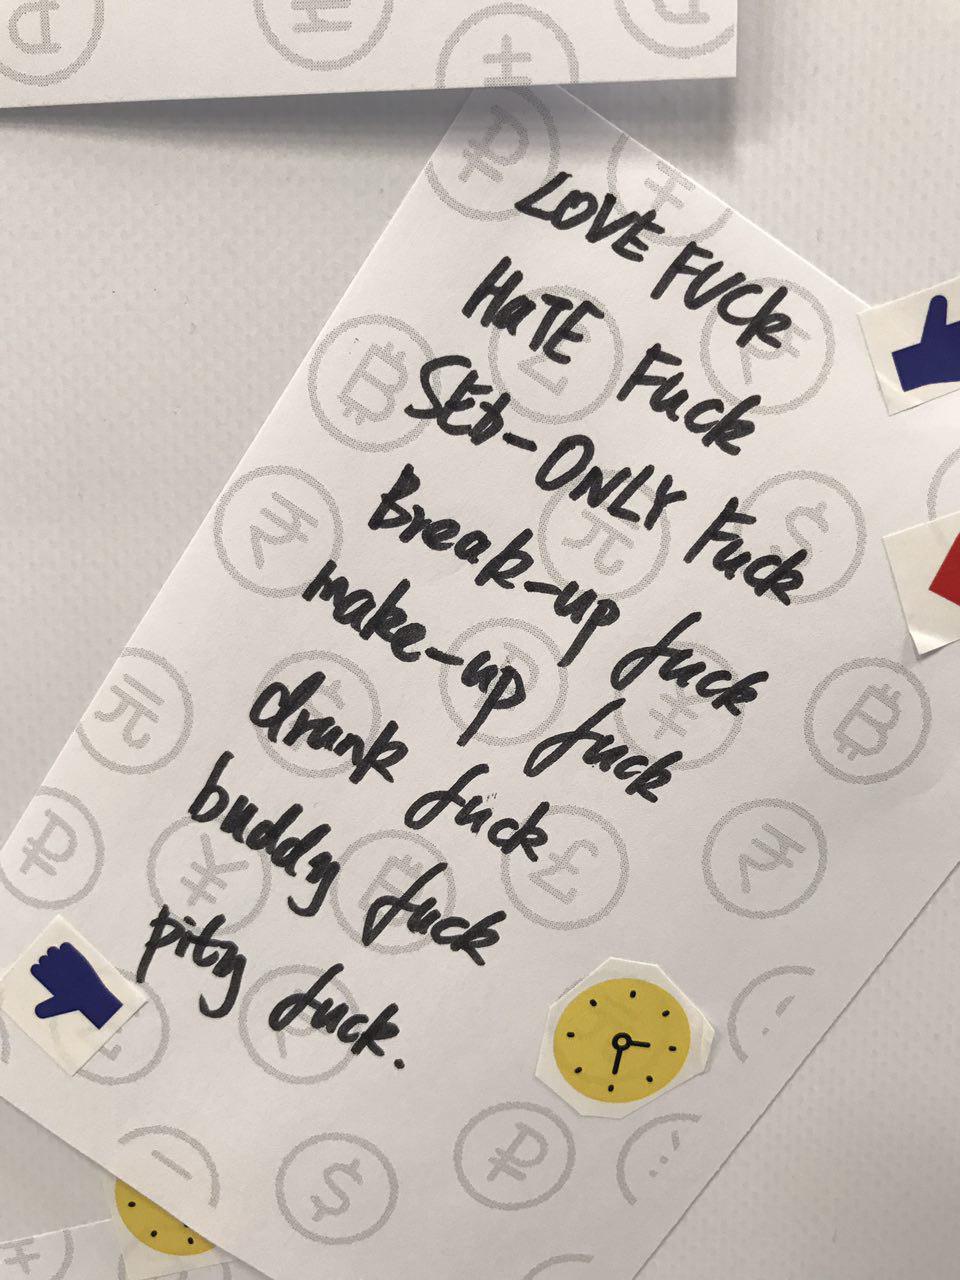 LOVE FUCK
HaTE Fuck
-ONLY Fuck
Break-up fuck
make-up fuck
drunk fuck
buddy fuck
pity fuck.